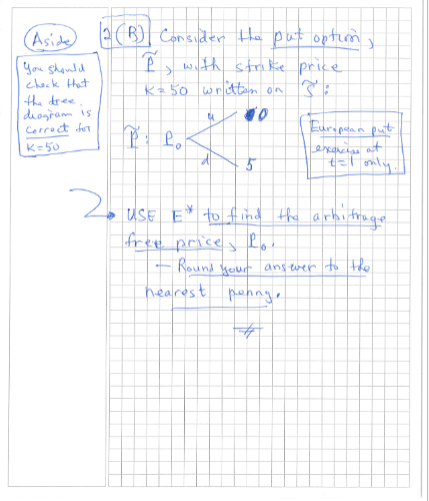 Aside
You should
check that
the tree
diagram is
correct for
K=50
2(B) Consider the put option,
P̃, with strike price
K=50 written on S̃:
P̃: P₀
u
0
d
5
European put
exercise at
t=1 only.
USE E* to find the arbitrage
free price, P₀.
— Round your answer to the
nearest penny.